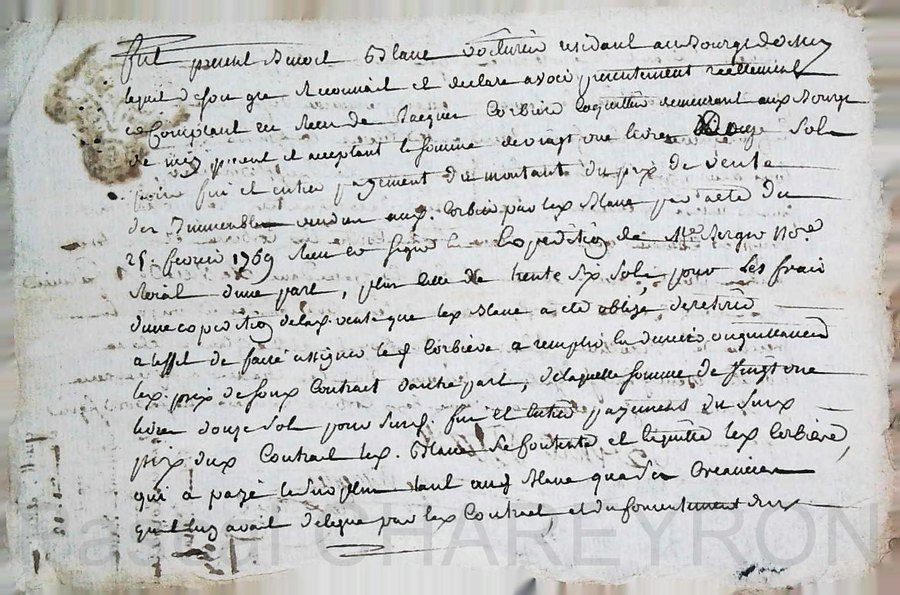 fut present Benoit Blanc voiturier residant au Bourg de
lequel de son gré reconnait et declare avoir presentement réellement
comptant en de Jacques Corbiere coquettier demeurant aux Bourg
de present et acceptant la somme de vingt une livres douze sols
pour fin et entier payement du montant du prix de vente
des Immeubles vendus aux Corbiere par lex Blanc par acte du
25 fevrier 1769 signé Expedition de Me Sergier Nore
Roial d'une part, plus celle de trente six sols pour les frais
d'une expedition delax vente que lex Blanc a été obligé de retirer
a leffet de faire assigner le sr Corbiere a remplir
lex prix de soux Contract dautre part, de laquelle somme de vingt une
livres douze sols pour fin et entier payement du susx
prix dux Contract lex Blanc se contente et quitte lex Corbiere,
qui a payé tant aux Blanc qua ses Creanciers
qu'il luy avait delegue par lex Contract, et du consentement dux
Pascal CHAREYRON